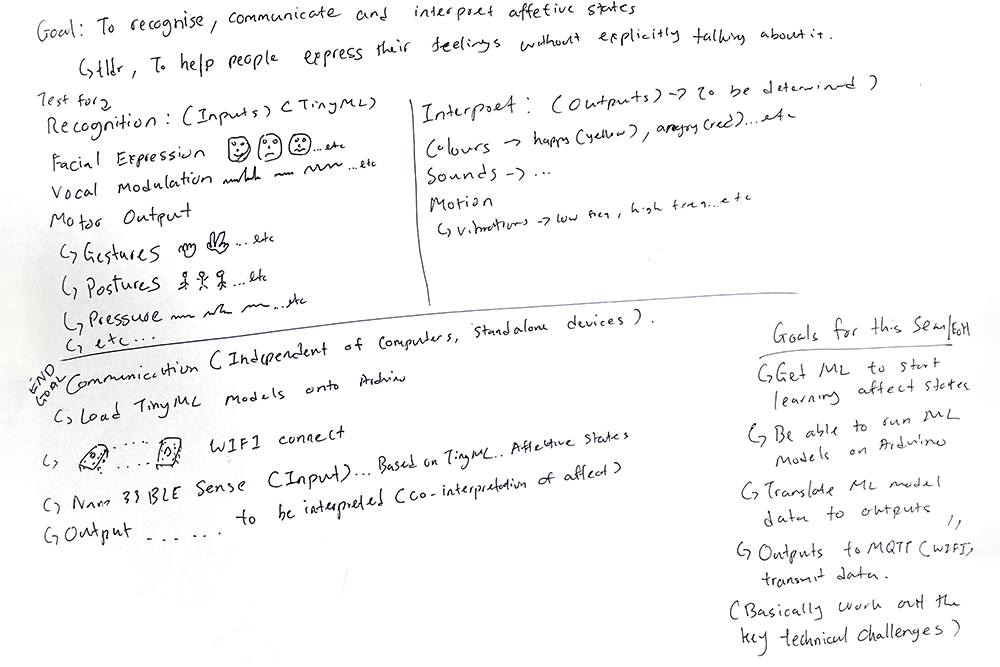 Goal: To recognise, communicate and interpret affetive states
↳ tldr, To help people express their feelings without explicitly talking about it.
Test for
Recognition: (Inputs) (TinyML)
Facial Expression ...etc
Vocal Modulation ...etc
Motor Output
↳ Gestures ...etc
↳ Postures ...etc
↳ Pressure ...etc
↳ etc...
Interpret: (Outputs) -> To be determined)
Colours -> happy (yellow), angry (red)...etc
Sounds -> ...
Motion
↳ vibrations -> low freq, high freq...etc
END GOAL
Communication (Independent of computers, standalone devices).
↳ Load TinyML models onto Arduino
↳ WIFI connect
↳ Nano 33 BLE Sense (Input)... Based on TinyML.. Affective states
↳ Output ...... to be interpreted (co-interpretation of affect)
Goals for this Sem/EOH
↳ Get ML to start
learning affect states
↳ Be able to run ML
models on Arduino
↳ Translate ML model
data to outputs
↳ Outputs to MQTT (WIFI),
transmit data.
(Basically work out the
key technical challenges)